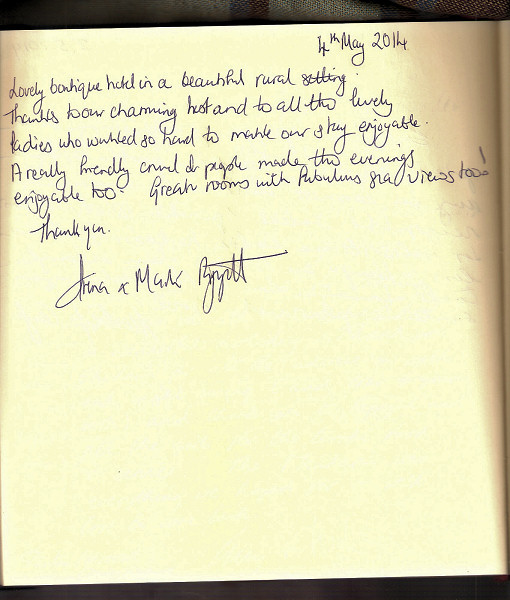 4th May 2014
Lovely boutique hotel in a beautiful rural setting.
Thanks to our charming host and to all the lovely
ladies who worked so hard to make our stay enjoyable.
A really friendly crowd of people made the evenings
enjoyable too. Great rooms with fabulous sea views too!
Thank you.
Anna & Mark